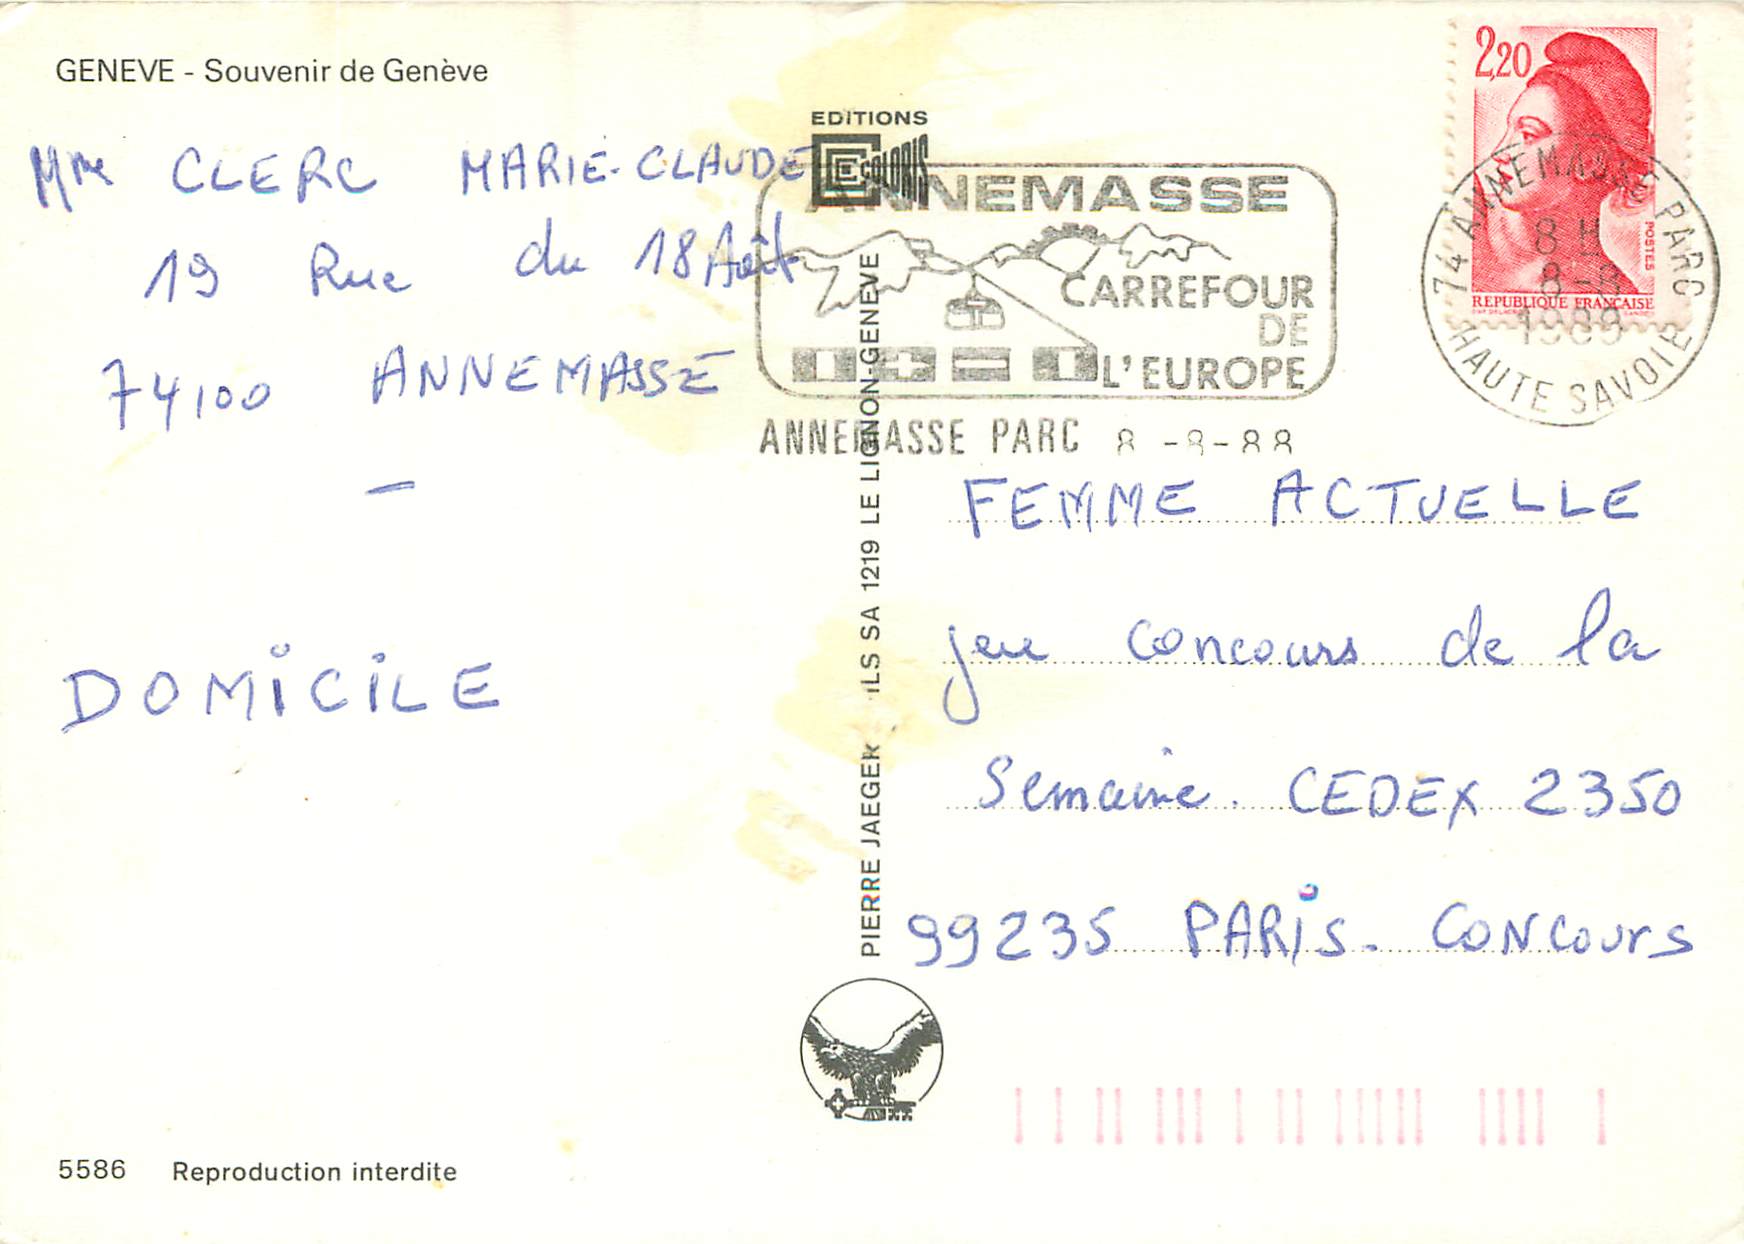 GENEVE - Souvenir de Genève
Mme CLERC MARIE-CLAUDE
19 Rue du 18 Août
74100 ANNEMASSE
—
DOMICILE
5586 Reproduction interdite
EDITIONS
COLORIS
PIERRE JAEGER ILS SA 1219 LE LIGNON-GENEVE
ANNEMASSE
CARREFOUR
DE
L'EUROPE
ANNEMASSE PARC 8-8-88
2,20
POSTES
REPUBLIQUE FRANÇAISE
74 ANNEMASSE PARC
8 H
8-8
1988
HAUTE SAVOIE
FEMME ACTUELLE
jeu concours de la
Semaine. CEDEX 2350
99235 PARIS. CONCOURS